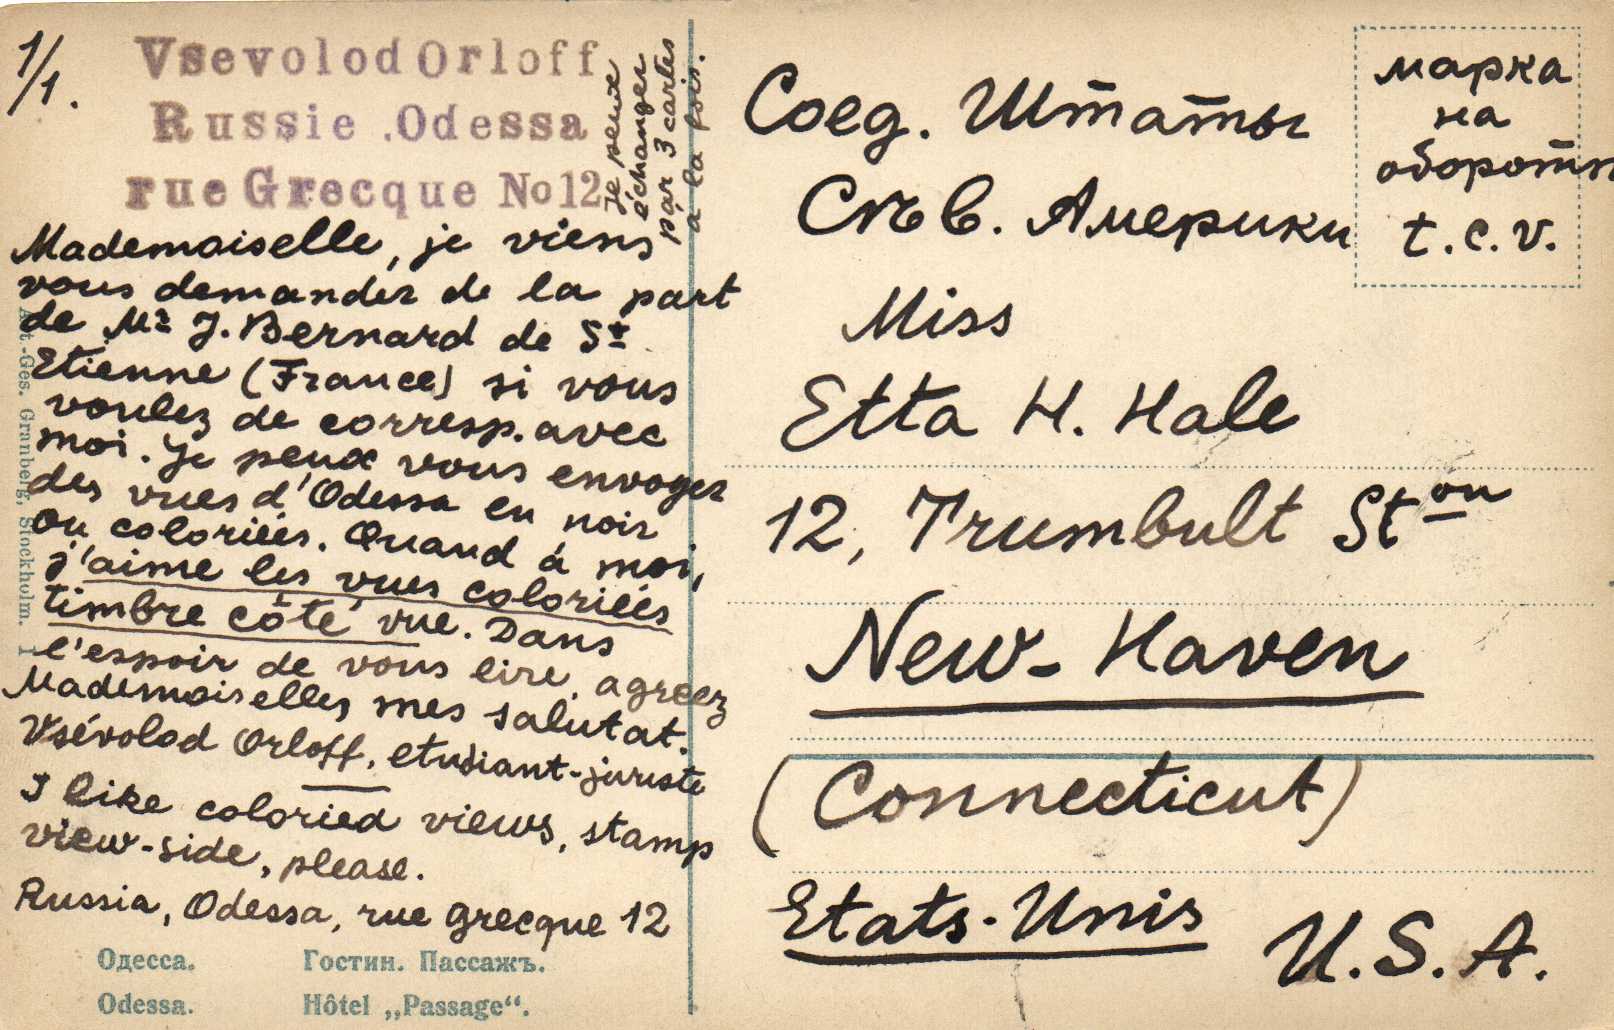 1/1.
Vsevolod Orloff
Russie Odessa
rue Grecque No 12
Je peux
échanger
par 3 cartes
à la fois.
Mademoiselle, je viens
vous demander de la part
de Mr J. Bernard de St
Etienne (France) si vous
voulez de corresp. avec
moi. Je peux vous envoyer
des vues d'Odessa en noir
ou coloriées. Quand à moi,
j'aime les vues coloriées
timbre côté vue. Dans
l'espoir de vous lire, agréez
Mademoiselles mes salutat.
Vsévolod Orloff, etudiant-juriste
I like coloried views, stamp
view-side, please.
Russia, Odessa, rue grecque 12
Одесса. Гостин. Пассажъ.
Odessa. Hôtel „Passage“.
Akt.-Ges. Granberg, Stockholm.
марка
на
оборотѣ
t.c.v.
Соед. Штаты
Сѣв. Америки
Miss
Etta H. Hale
12, Trumbult St on
New-Haven
(Connecticut)
Etats-Unis
U.S.A.